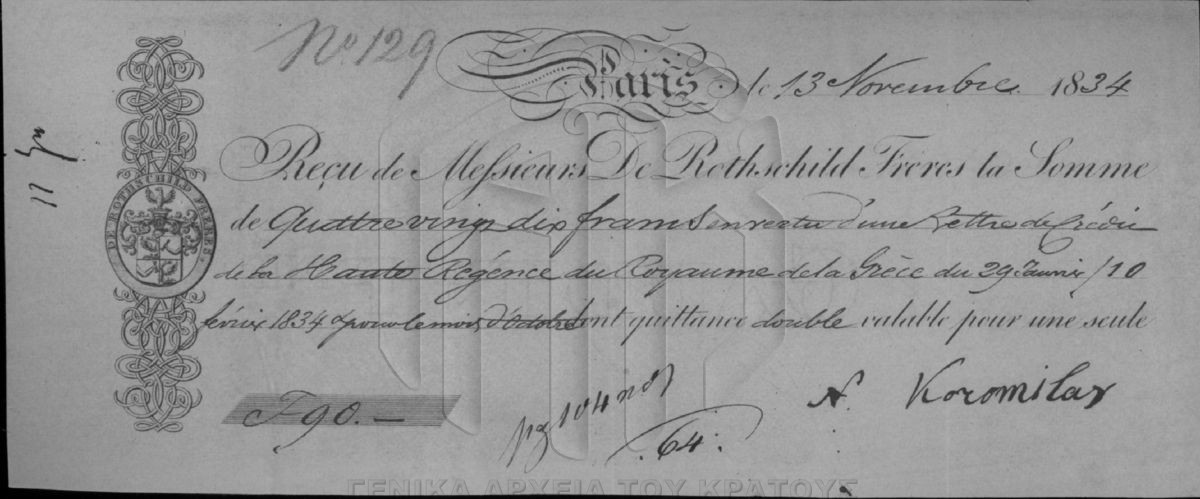 No. 129
Paris, le 13 Novembre 1834
DE ROTHSCHILD FRERES.
Reçu de Messieurs De Rothschild Frères la Somme
de Quattre vingt dix francs en vertu d'une Lettre de Crédit
de la Haute Régence du Royaume de la Grèce du 29 Janvier / 10
février 1834 pour le mois d'Octobre dont quittance double valable pour une seule
F 90.—
64.
A. Koromilas
ΓΕΝΙΚΑ ΑΡΧΕΙΑ ΤΟΥ ΚΡΑΤΟΥΣ